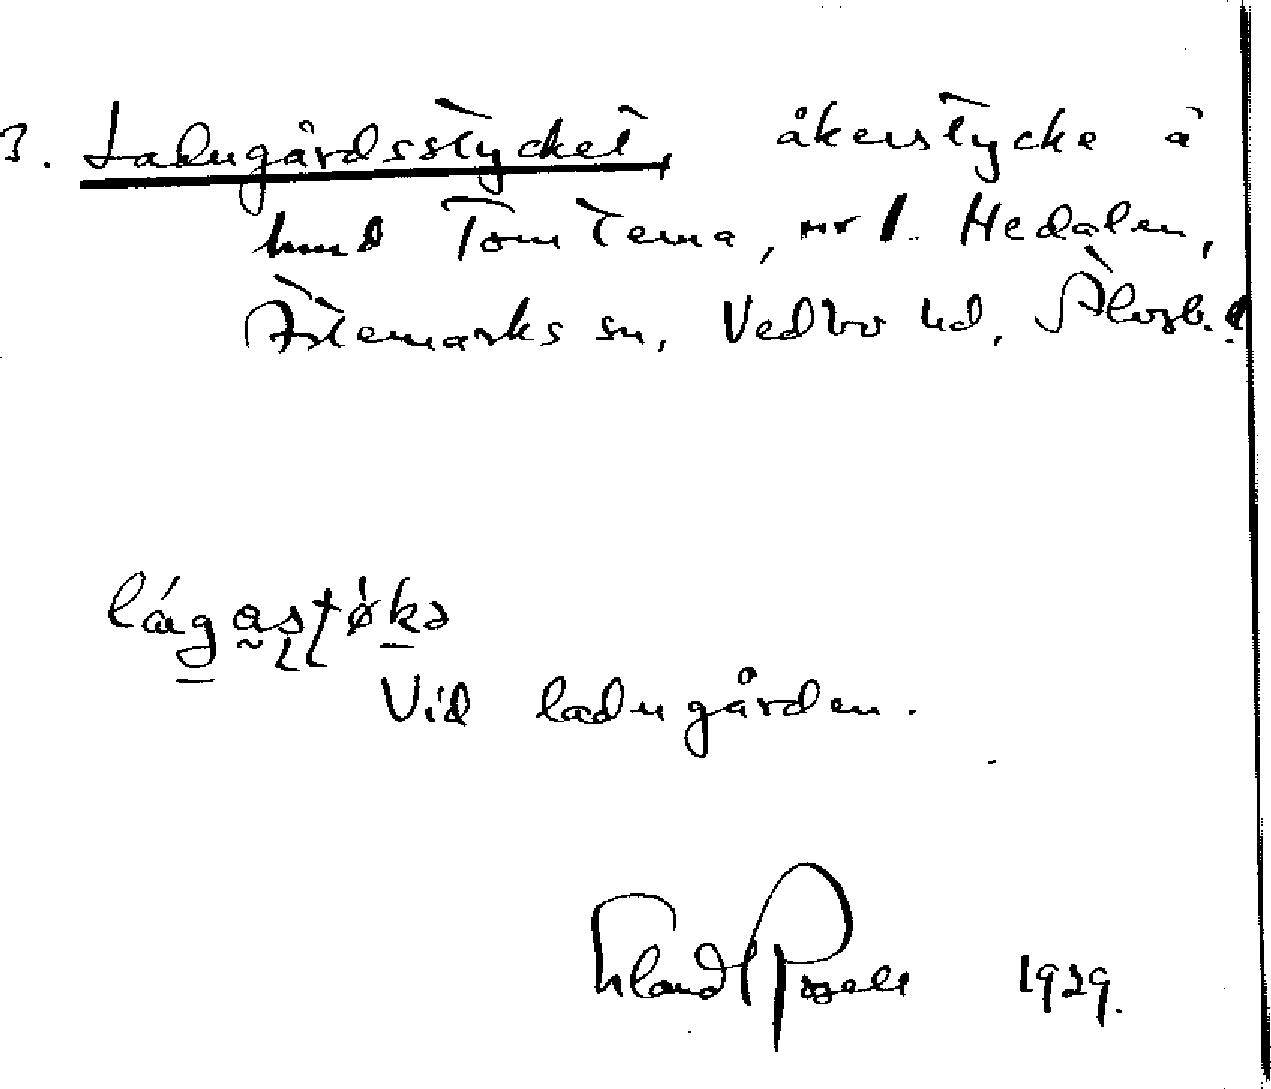 3. Ladugårdsstycket, åkerstycke å
hmd Tomterna, nr 1. Hedalen,
Ärtemarks sn, Vedbo hd, Älvsb. l.
Vid ladugården.
Erland Rosell 1929.